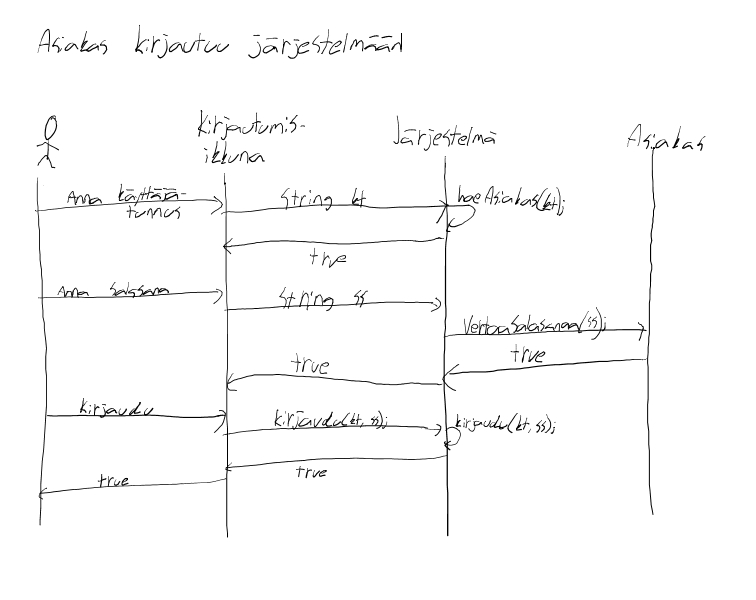 Asiakas kirjautuu järjestelmään
Kirjautumis-
ikkuna
Järjestelmä
Asiakas
Anna käyttäjä-
tunnus
String kt
haeAsiakas(kt);
true
Anna salasana
String ss
VertaaSalasanaa(ss);
true
true
kirjaudu
kirjaudu(kt, ss);
kirjaudu(kt, ss);
true
true